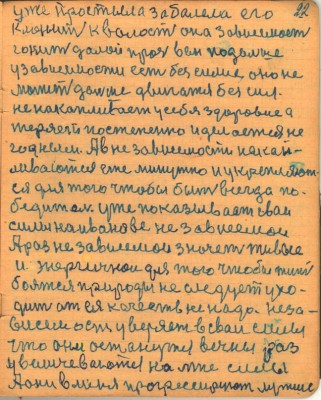 22
уже простыла заболела его
клонит к валост она зависимост
гонит далой проч вон подальше
у зависимости ест безсилие, оно не
может даже двигатся без сил.
не накапливает у себя здоровие а
теряет постепенно и делается не
годнеем. А в не зависимости накап-
ливаются еже минутно и укрепляют-
ся для того чтобы быт всегда по-
бедителем. уже показывает сваи
сили на
А раз не зависемои значет живые
и энергичнои для того чтобы жит
боятся природы не следует ухо-
дит от ея качеств не надо. неза-
висимост уверяет в сваи силы
что они останутся вечны раз
увеличеваются на мне силы
А они в меня прогрессируют лутше